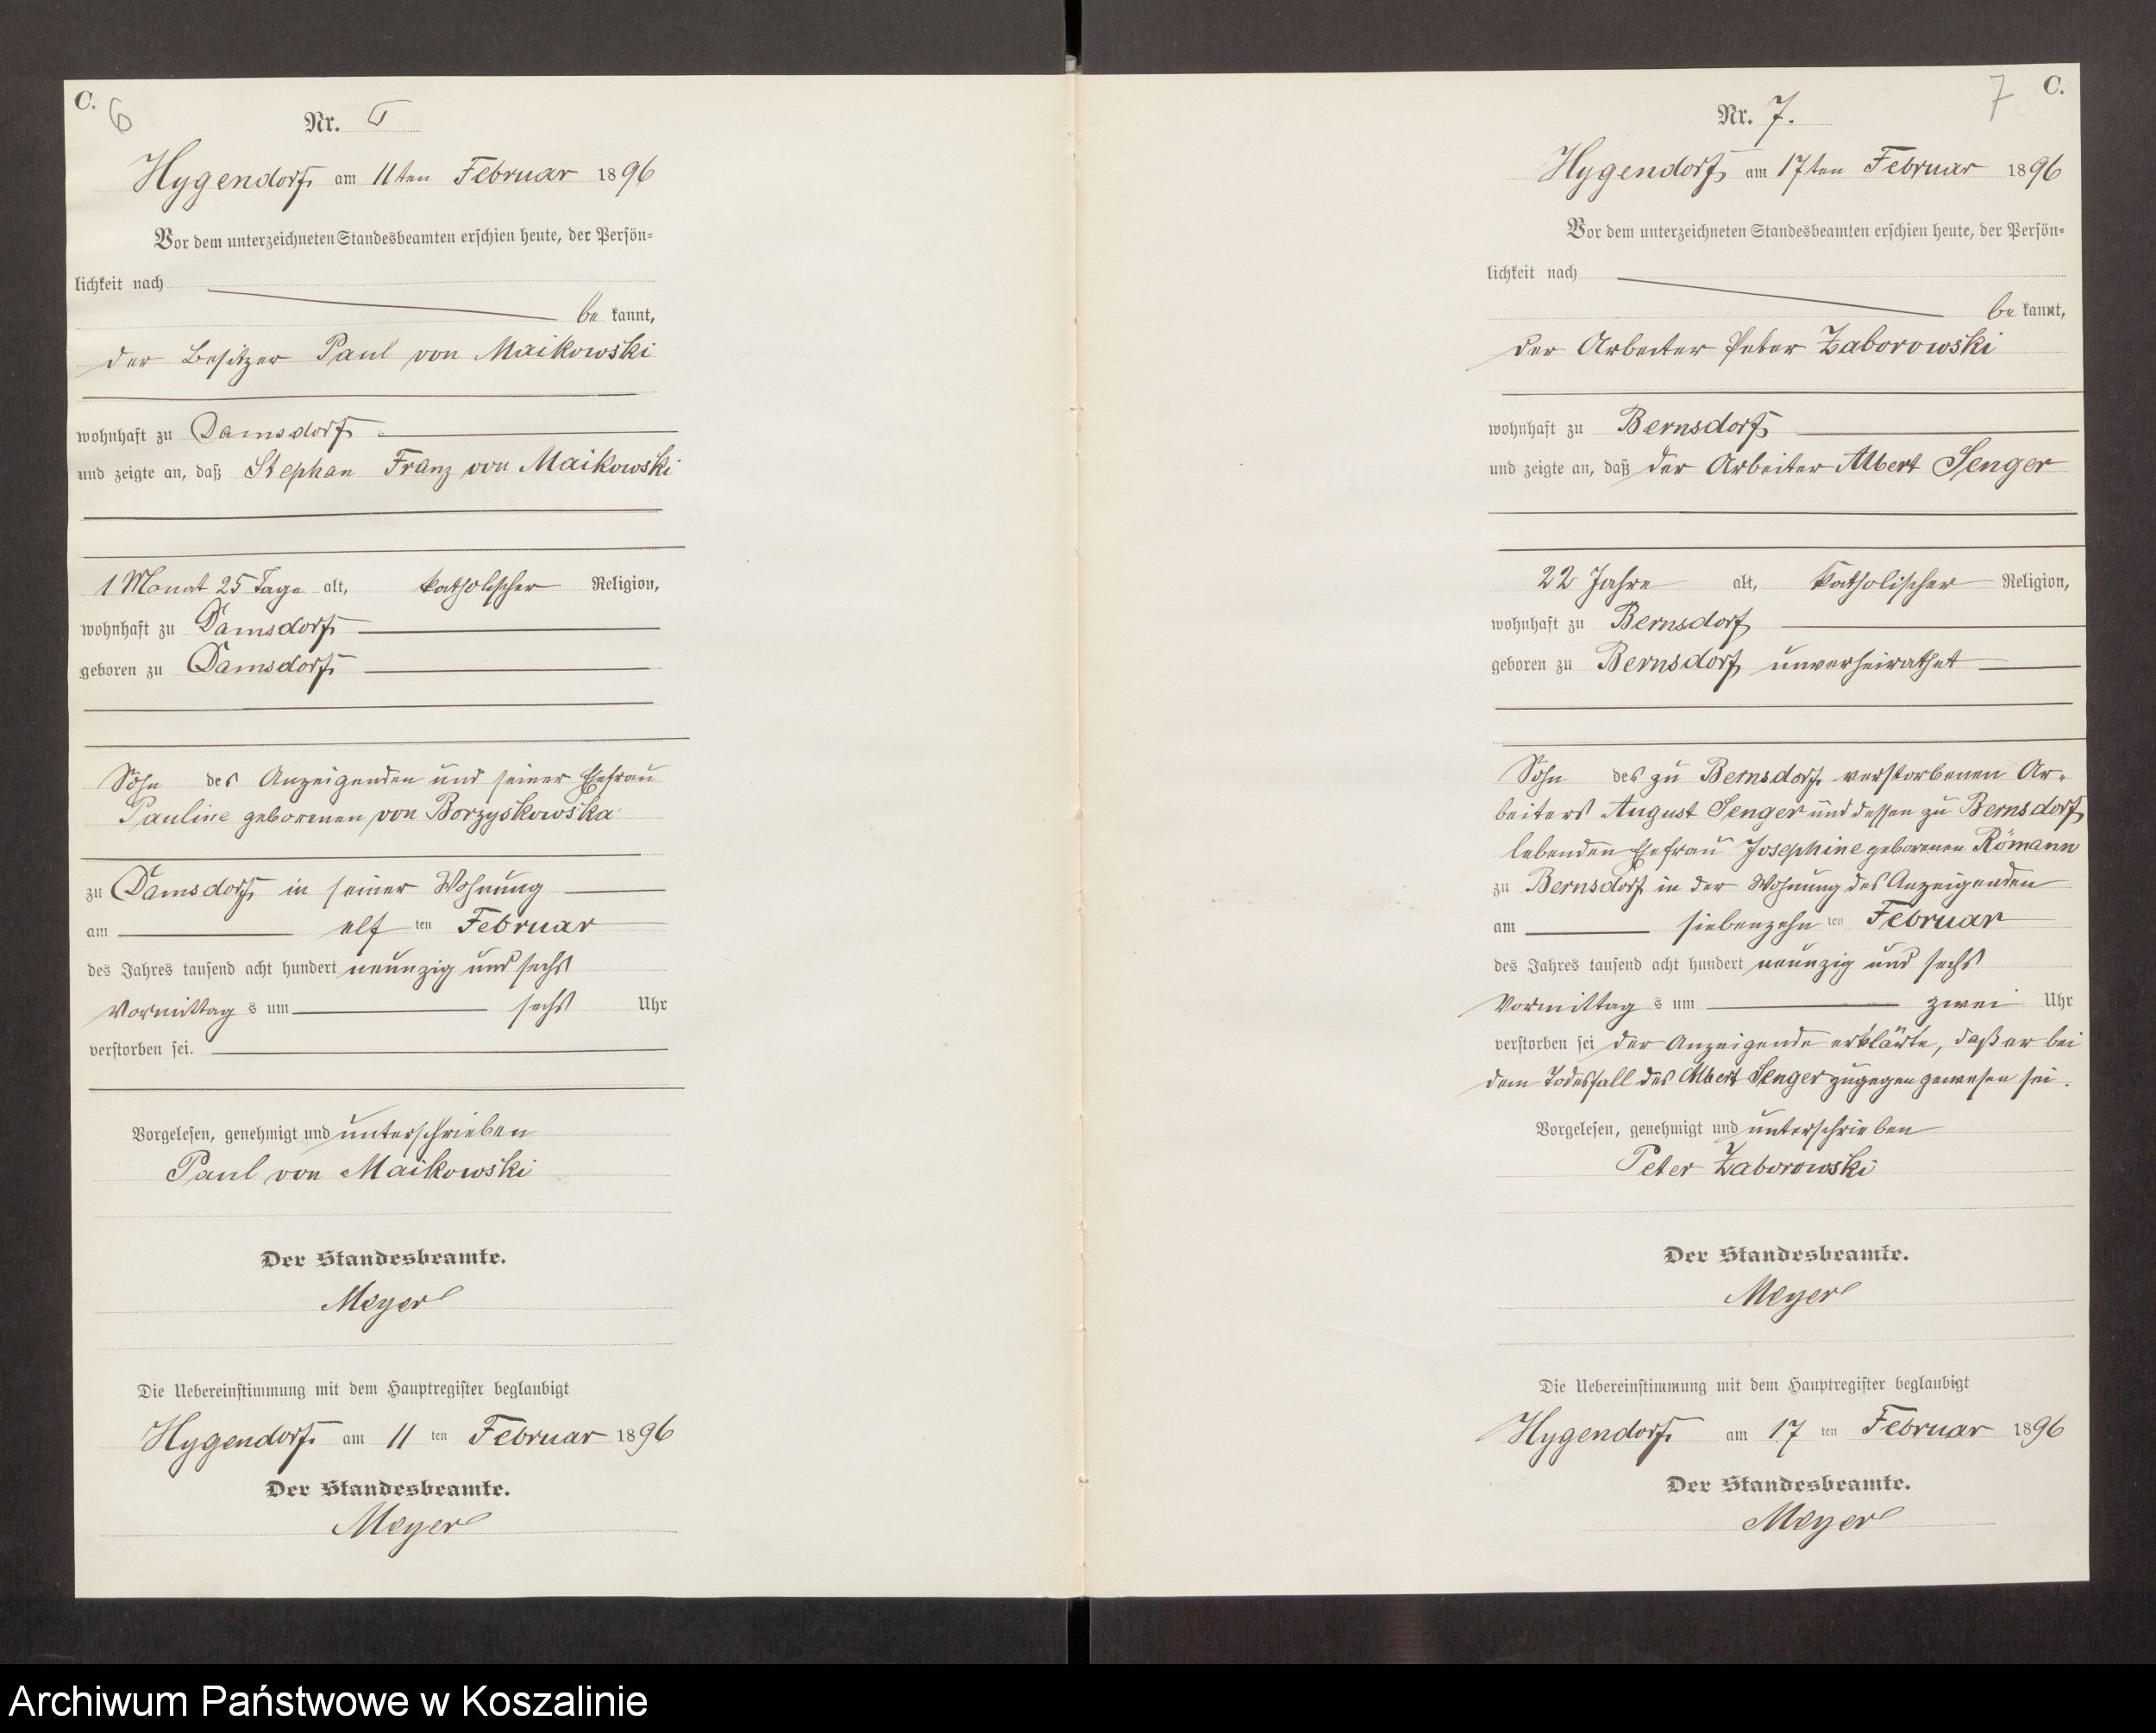 C.
6
Nr. 6
Hygendorf am 11ten Februar 1896
Vor dem unterzeichneten Standesbeamten erschien heute, der Persön=
lichkeit nach
be kannt,
der Besitzer Paul von Maikowski
wohnhaft zu Damsdorf
und zeigte an, daß Stephan Franz von Maikowski
1 Monat 25 Tage alt, katholischer Religion,
wohnhaft zu Damsdorf
geboren zu Damsdorf
Sohn des Anzeigenden und seiner Ehefrau
Pauline geborenen von Borzyskowska
zu Damsdorf in seiner Wohnung
am elf ten Februar
des Jahres tausend acht hundert neunzig und sechs
Vormittag s um sechs Uhr
verstorben sei.
Vorgelesen, genehmigt und unterschrieben
Paul von Maikowski
Der Standesbeamte.
Meyer
Die Uebereinstimmung mit dem Hauptregister beglaubigt
Hygendorf am 11 ten Februar 1896
Der Standesbeamte.
Meyer
7
C.
Nr. 7.
Hygendorf am 17ten Februar 1896
Vor dem unterzeichneten Standesbeamten erschien heute, der Persön=
lichkeit nach
be kannt,
der Arbeiter Peter Zaborowski
wohnhaft zu Bernsdorf
und zeigte an, daß der Arbeiter Albert Senger
22 Jahre alt, katholischer Religion,
wohnhaft zu Bernsdorf
geboren zu Bernsdorf unverheirathet
Sohn des zu Bernsdorf verstorbenen Ar-
beiters August Senger und dessen zu Bernsdorf
lebenden Ehefrau Josephine geborenen Römann
zu Bernsdorf in der Wohnung des Anzeigenden
am siebenzehn ten Februar
des Jahres tausend acht hundert neunzig und sechs
Vormittag s um zwei Uhr
verstorben sei der Anzeigende erklärte, daß er bei
dem Todesfall des Albert Senger zugegen gewesen sei.
Vorgelesen, genehmigt und unterschrieben
Peter Zaborowski
Der Standesbeamte.
Meyer
Die Uebereinstimmung mit dem Hauptregister beglaubigt
Hygendorf am 17 ten Februar 1896
Der Standesbeamte.
Meyer
Archiwum Państwowe w Koszalinie